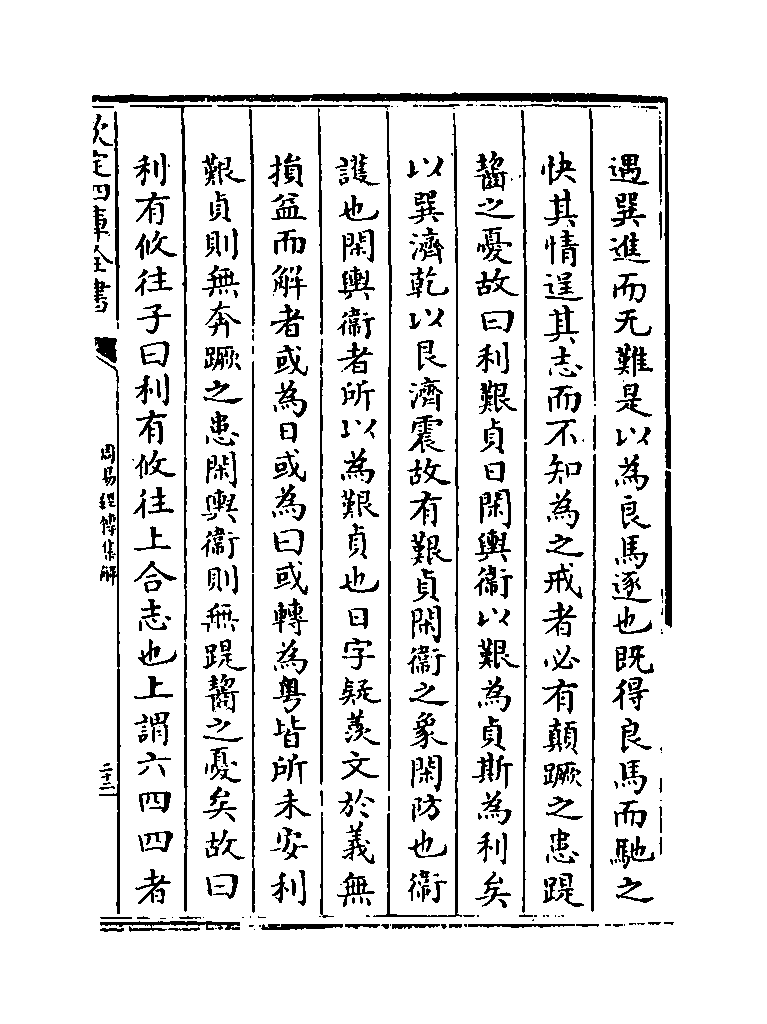 遇巽進而无難是以為良馬逐也既得良馬而馳之
快其情逞其志而不知為之戒者必有顛蹶之患踶
齧之憂故曰利艱貞日閑輿衞以艱為貞斯為利矣
以巽濟乾以艮濟震故有艱貞閑衞之象閑防也衞
護也閑輿衞者所以為艱貞也日字疑羨文於義無
損益而解者或為日或為曰或轉為粵皆所未安利
艱貞則無奔蹶之患閑輿衞則無踶齧之憂矣故曰
利有攸往子曰利有攸往上合志也上謂六四四者
欽定四庫全書
周易經傳集解
二十二